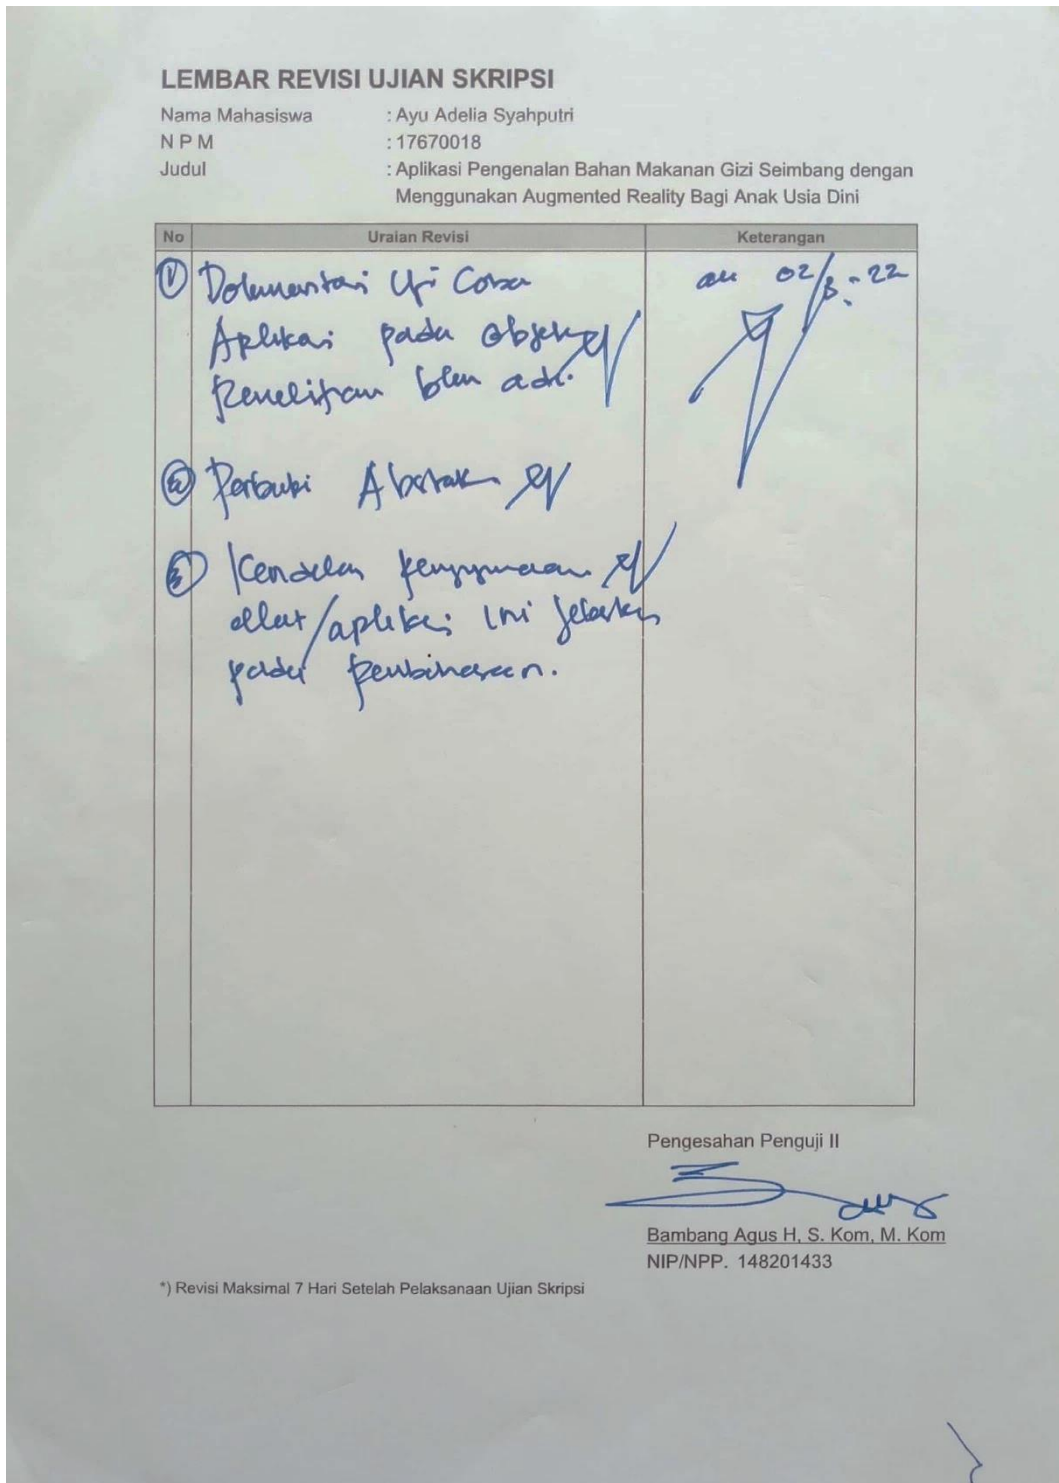 LEMBAR REVISI UJIAN SKRIPSI
Nama Mahasiswa : Ayu Adelia Syahputri
N P M : 17670018
Judul : Aplikasi Pengenalan Bahan Makanan Gizi Seimbang dengan
Menggunakan Augmented Reality Bagi Anak Usia Dini
No Uraian Revisi Keterangan
① Dokumentasi Uji Coba
Aplikasi pada Objek
Penelitian blm ada.
② Perbaiki Abstrak
③ Kendala penggunaan
alat/aplikasi ini jelaskan
pada pembahasan.
acc 02/3-22
Pengesahan Penguji II
Bambang Agus H, S. Kom, M. Kom
NIP/NPP. 148201433
*) Revisi Maksimal 7 Hari Setelah Pelaksanaan Ujian Skripsi